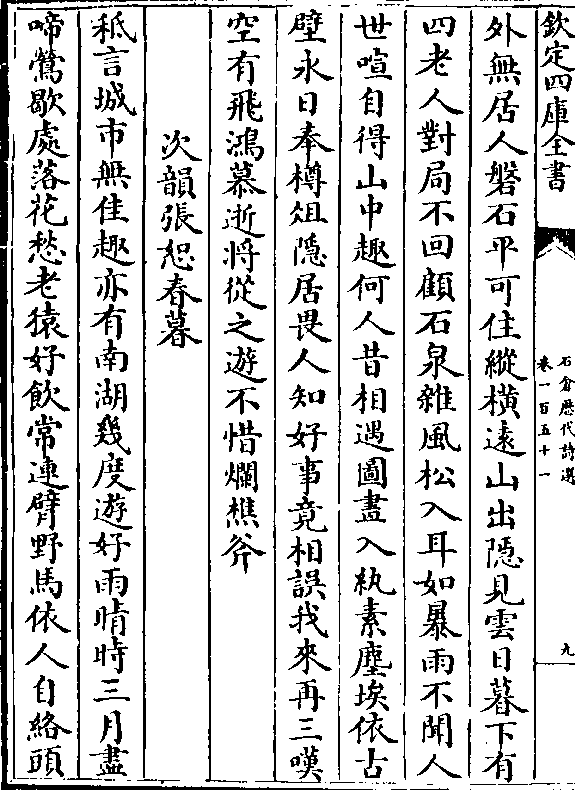 欽定四庫全書
石倉歷代詩選
卷一百五十一
九
外無居人磐石平可住縱橫遠山出隱見雲日暮下有
四老人對局不回顧石泉雜風松入耳如暴雨不聞人
世喧自得山中趣何人昔相遇圖畫入紈素塵埃依古
壁永日奉樽俎隱居畏人知好事竟相誤我來再三嘆
空有飛鴻慕逝將從之遊不惜爛樵斧
次韻張恕春暮
秖言城市無佳趣亦有南湖幾度遊好雨晴時三月盡
啼鶯歇處落花愁老猿好飲常連臂野馬依人自絡頭